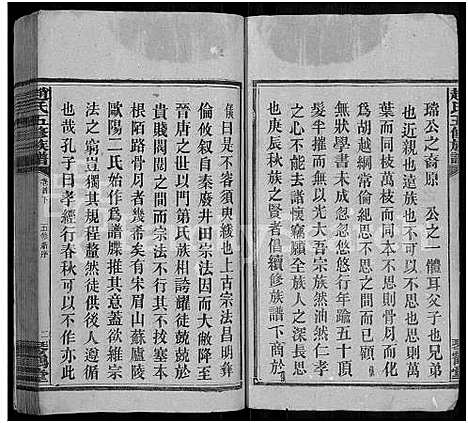 趙氏五修族譜
瑞公之裔原 公之一體耳父子也兄弟
也親莫近於斯矣追而遠之則也萬
葉而同枝萬而同本不思則骨月而
如胡越綱常倫紀思不思之間而已
愷學未成忽忽行年踰五十頂
髮半摧而無以光大吾宗族然油然仁孝
之心不能去諸懷竊願全族人之深長思
也庚辰秋族之賢者倡續修族譜下商於
儀曰是不容須臾緩也上古宗法昌明彝
倫攸敘自秦廢井田宗法因而大敝降至
晉唐之世以門第氏族相誇耀徒兢兢於
貴賤閥閱之間而宗法不行其不拔塞本
根陌路骨月者幾希矣有宋眉山蘇廬陵
歐陽二氏始作爲譜牒推其意蓋欲維宗
法之窮豈獨其規程釐然徒令後人遵循
也哉孔子曰孝經行春秋可以不作亦此
趙氏五修族譜
卷首下
五修新序
二
琴鶴堂